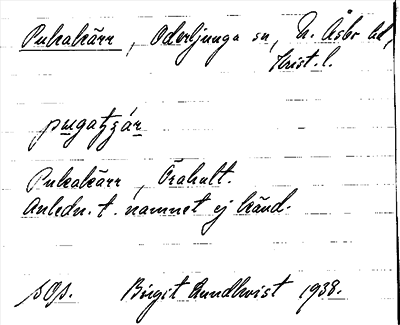 Pukakärr, Oderljunga sn, N. Åsbo hd,
Krist. l.
Pukakärr, Örahult.
Anledn. t. namnet ej känd.
sOp. Birgit Lundkvist 1938.